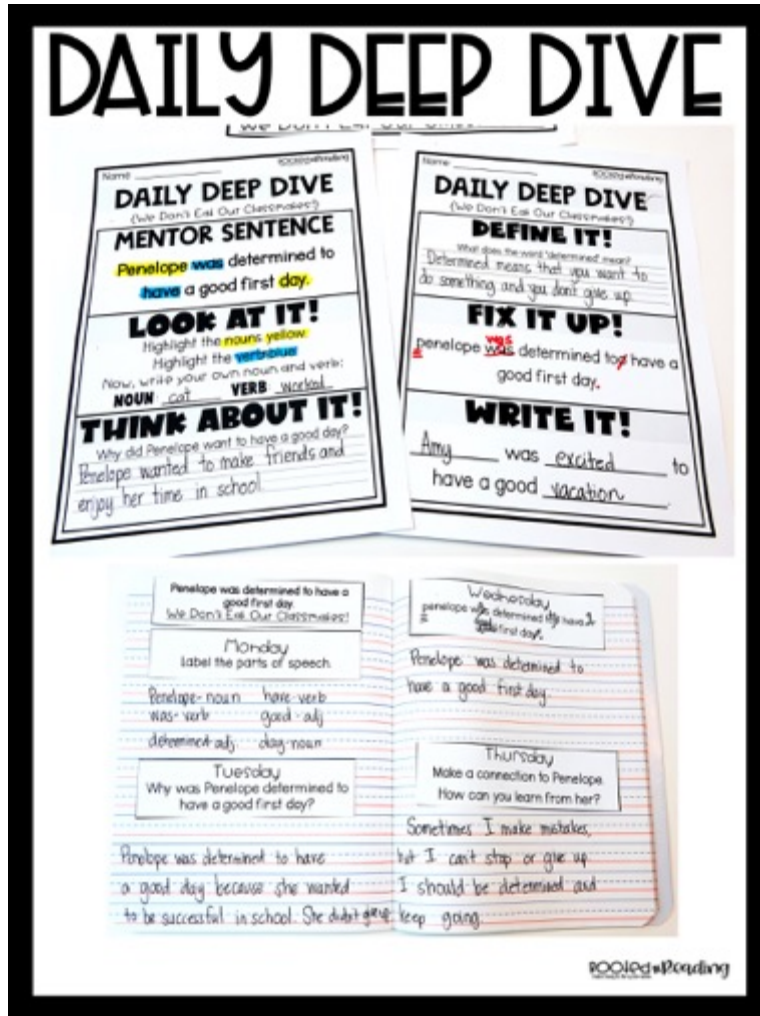 DAILY DEEP DIVE
We Don't Eat Our
Name
Rooted in Reading
DAILY DEEP DIVE
(We Don't Eat Our Classmates!)
MENTOR SENTENCE
Penelope was determined to
have a good first day.
LOOK AT IT!
Highlight the nouns yellow.
Highlight the verbs blue
Now, write your own noun and verb:
NOUN: cat VERB: worked
THINK ABOUT IT!
Why did Penelope want to have a good day?
Penelope wanted to make friends and
enjoy her time in school
Name
Rooted in Reading
DAILY DEEP DIVE
(We Don't Eat Our Classmates!)
DEFINE IT!
What does the word "determined" mean?
Determined means that you want to
do something and you don't give up
FIX IT UP!
was
penelope was determined too have a
good first day.
WRITE IT!
Amy was excited to
have a good vacation.
Penelope was determined to have a
good first day.
We Don't Eat Our Classmates!
Monday
Label the parts of speech.
Penelope-noun have-verb
was-verb good-adj
determined-adj. day-noun
Tuesday
Why was Penelope determined to
have a good first day?
Penelope was determined to have
a good day because she wanted
to be successful in school. She didn't give up
Wednesday
penelope determined have
first day.
Penelope was determined to
have a good first day.
Thursday
Make a connection to Penelope.
How can you learn from her?
Sometimes I make mistakes,
but I can't stop or give up
I should be determined and
keep going.
Rooted in Reading